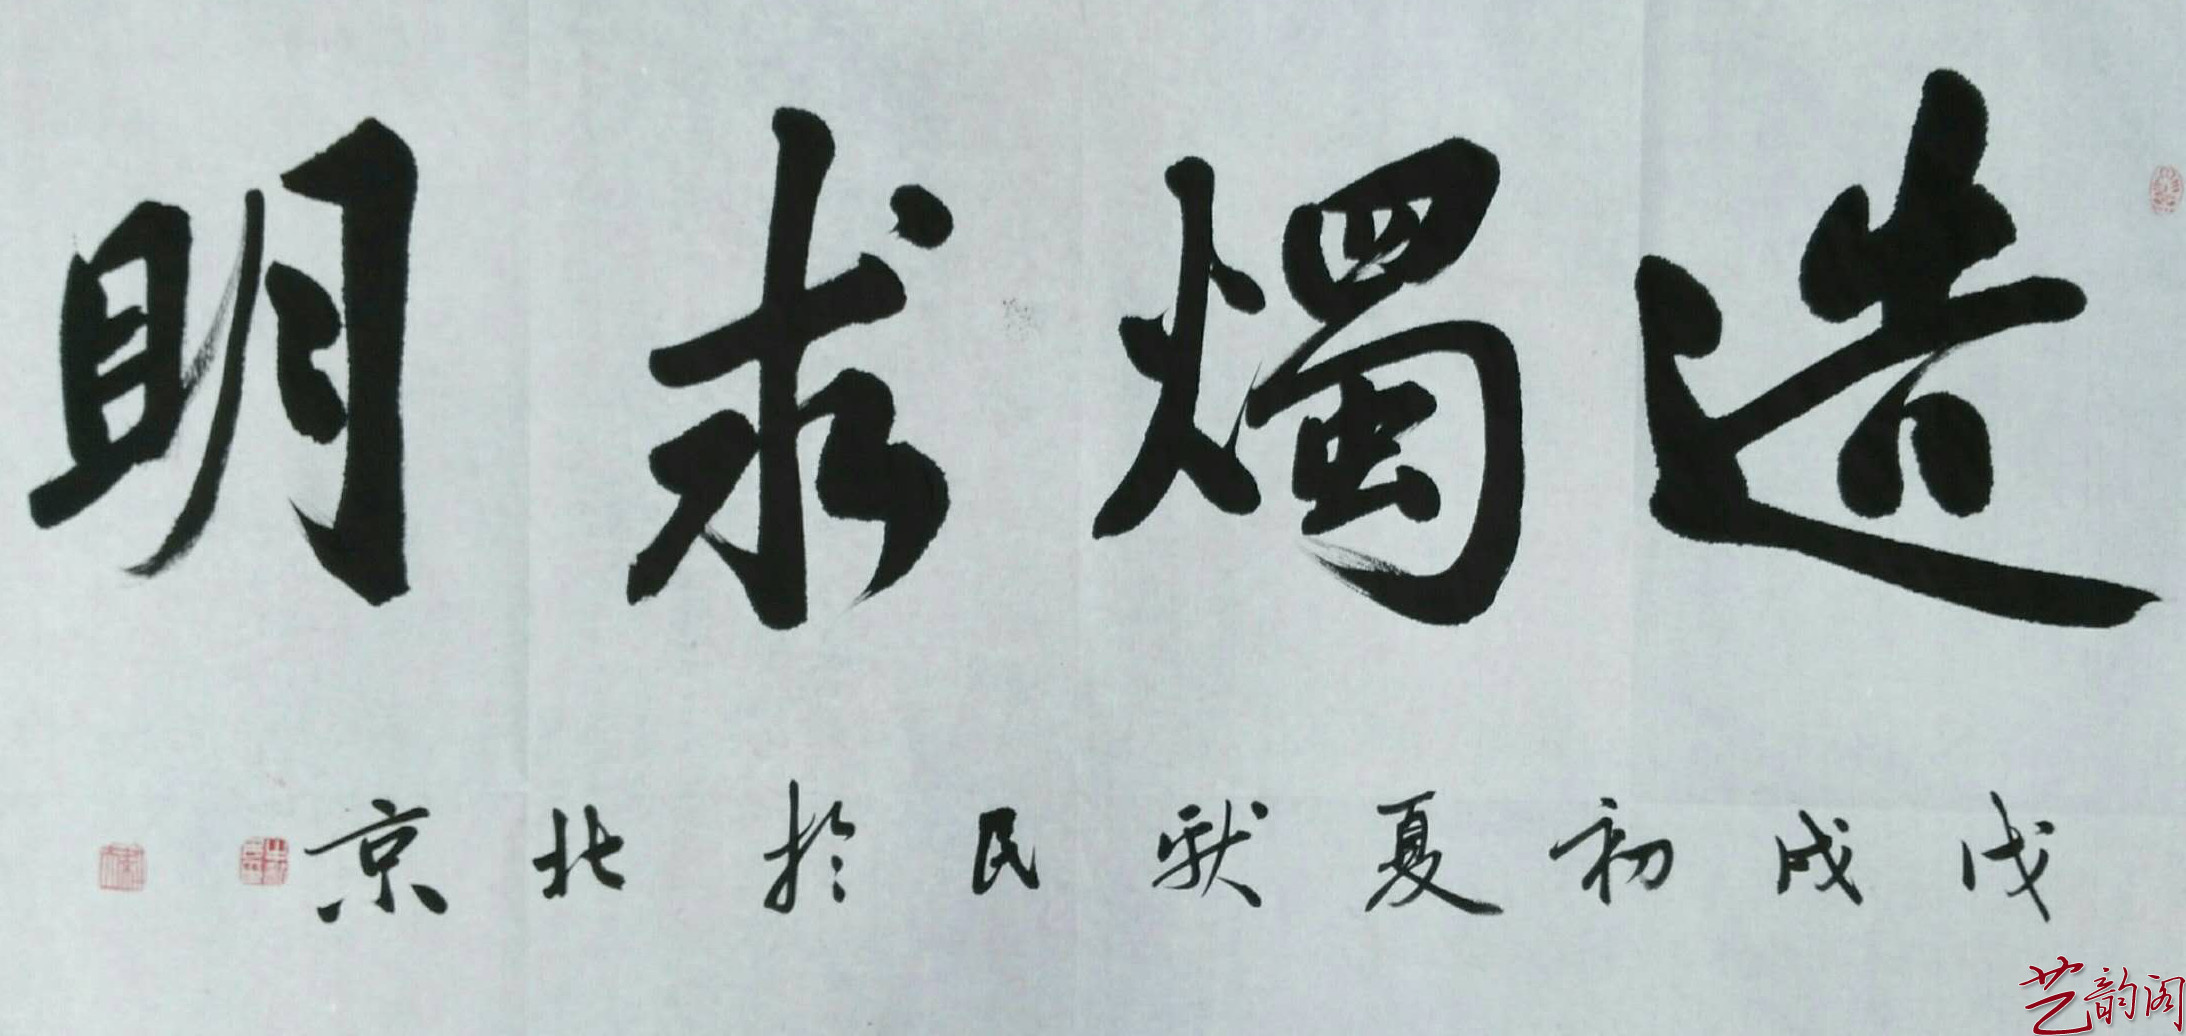 造燭求明
戊戌初夏献民於北京
艺韵阁